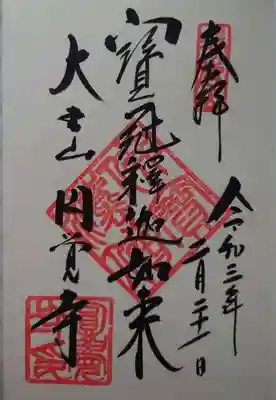 奉拝
令和三年
二月二十一日
寶冠釋迦如来
大本山 円覚寺